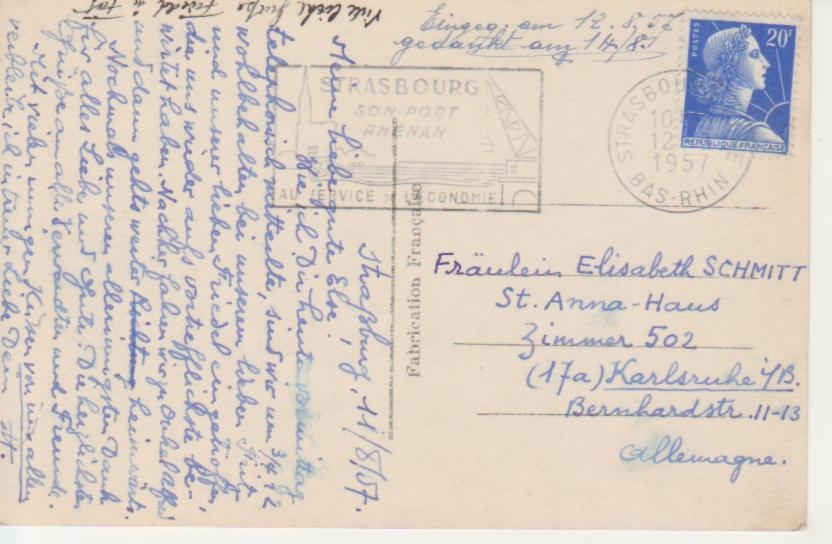 Eingeg. am 12.8.57
gedankt am 14/8.
POSTES
20F
REPUBLIQUE FRANCAISE
STRASBOURG
SON PORT
RHENAN
AU SERVICE DE L'ECONOMIE
STRASBOU
10
12
1957
BAS-RHIN
Fabrication Française
Fräulein Elisabeth SCHMITT
St. Anna-Haus
Zimmer 502
(17a) Karlsruhe i/B.
Bernhardstr. 11-13
Allemagne.
Straßburg, 11/8/57.
Meine liebe, gute Else,
Wie ich Dir heute vormittag
telephonisch mitteilte, sind wir um 3/4 12
wohlbehalten bei unserem lieben
und unserer lieben Friedel eingetroffen,
die uns wieder aufs vortrefflichste be-
wirtet haben. Nachher fahren wir zu Onkel Alfred
und dann gehts weiter heimwärts.
Nochmals unseren allerinnigsten Dank
für alles Liebe und Gute. Die herzlichsten
Grüße an alle Verwandten und Freunde.
Mit vielen innigen Küssen von uns allen
verbleibe ich in treuer Liebe Dein
Viele liebe Grüße Friedel u.